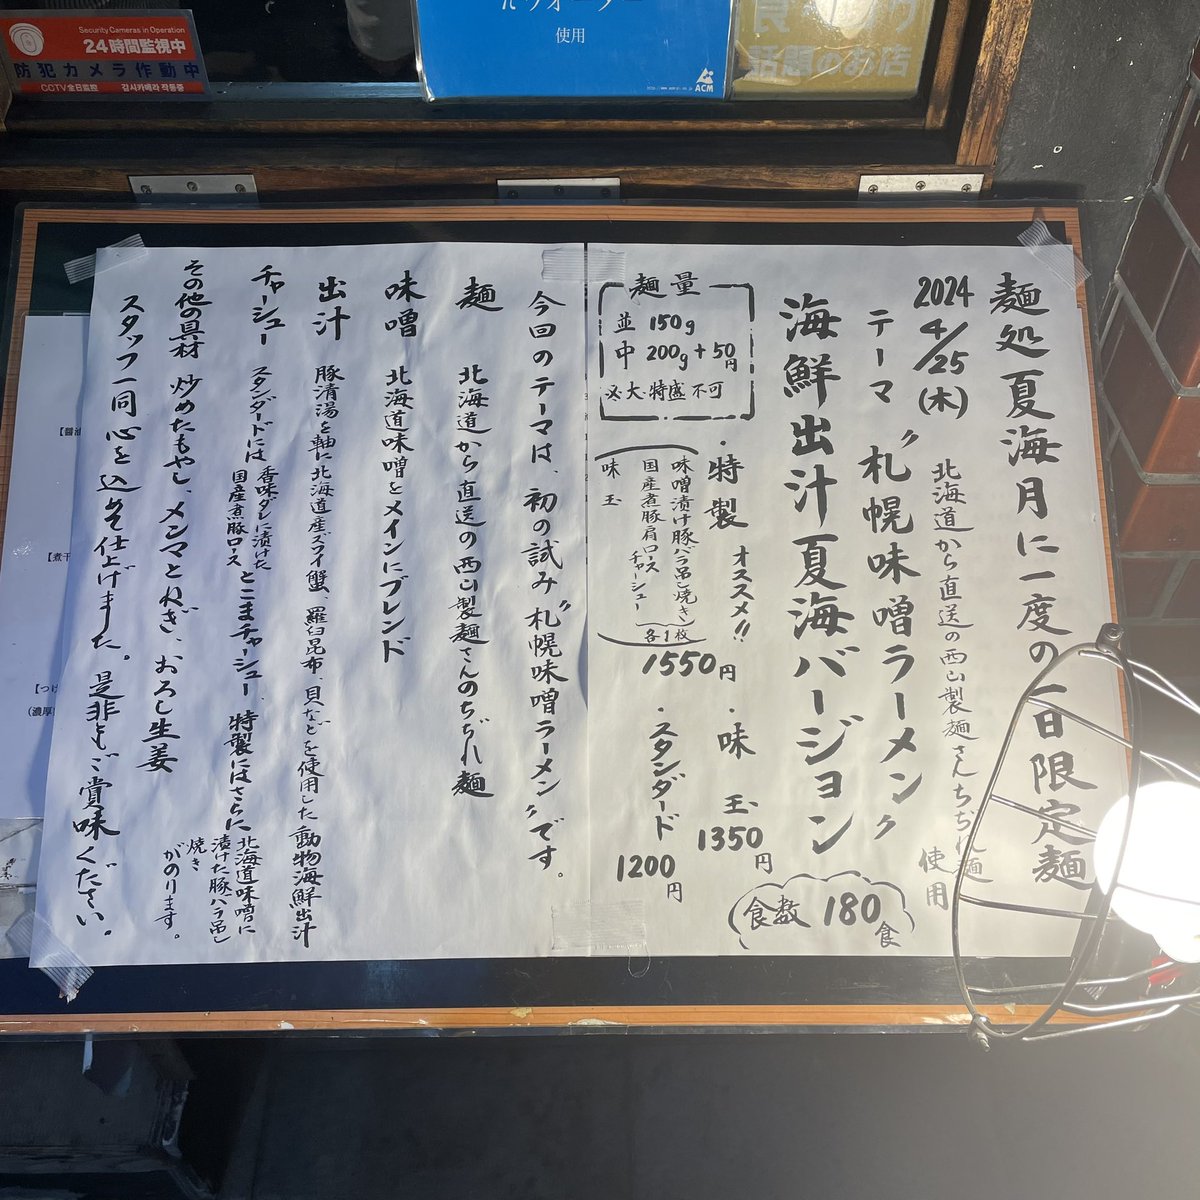 Security Cameras in Operation
24時間監視中
防犯カメラ作動中
CCTV全日监控 감시카메라 작동중
使用
ACM
話題のお店
麺処夏海月に一度の一日限定麺
2024
4/25
(木)
北海道から直送の西山製麺さんちぢれ麺
使用
テーマ〝札幌味噌ラーメン〟
海鮮出汁夏海バージョン
麺量
並 150g
中 200g+50円
※大・特盛不可
・特製 オススメ!!
味噌漬け豚バラ吊し焼き
国産煮豚肩ロースチャーシュー
各1枚
味玉
1550円
・味玉
1350円
・スタンダード
1200円
食数 180食
今回のテーマは、初の試み〝札幌味噌ラーメン〟です。
麺 北海道から直送の西山製麺さんのちぢれ麺
味噌 北海道味噌をメインにブレンド
出汁 豚清湯を軸に北海道産ズワイ蟹、羅臼昆布、貝などを使用した動物海鮮出汁
チャーシュー スタンダードには香味ダレに漬けた国産煮豚ロースとこまチャーシュー、特製にはさらに北海道味噌に漬けた豚バラ吊し焼きがのります。
その他の具材 炒めたもやし、メンマとねぎ、おろし生姜
スタッフ一同心を込めて仕上げました。是非ともご賞味ください。